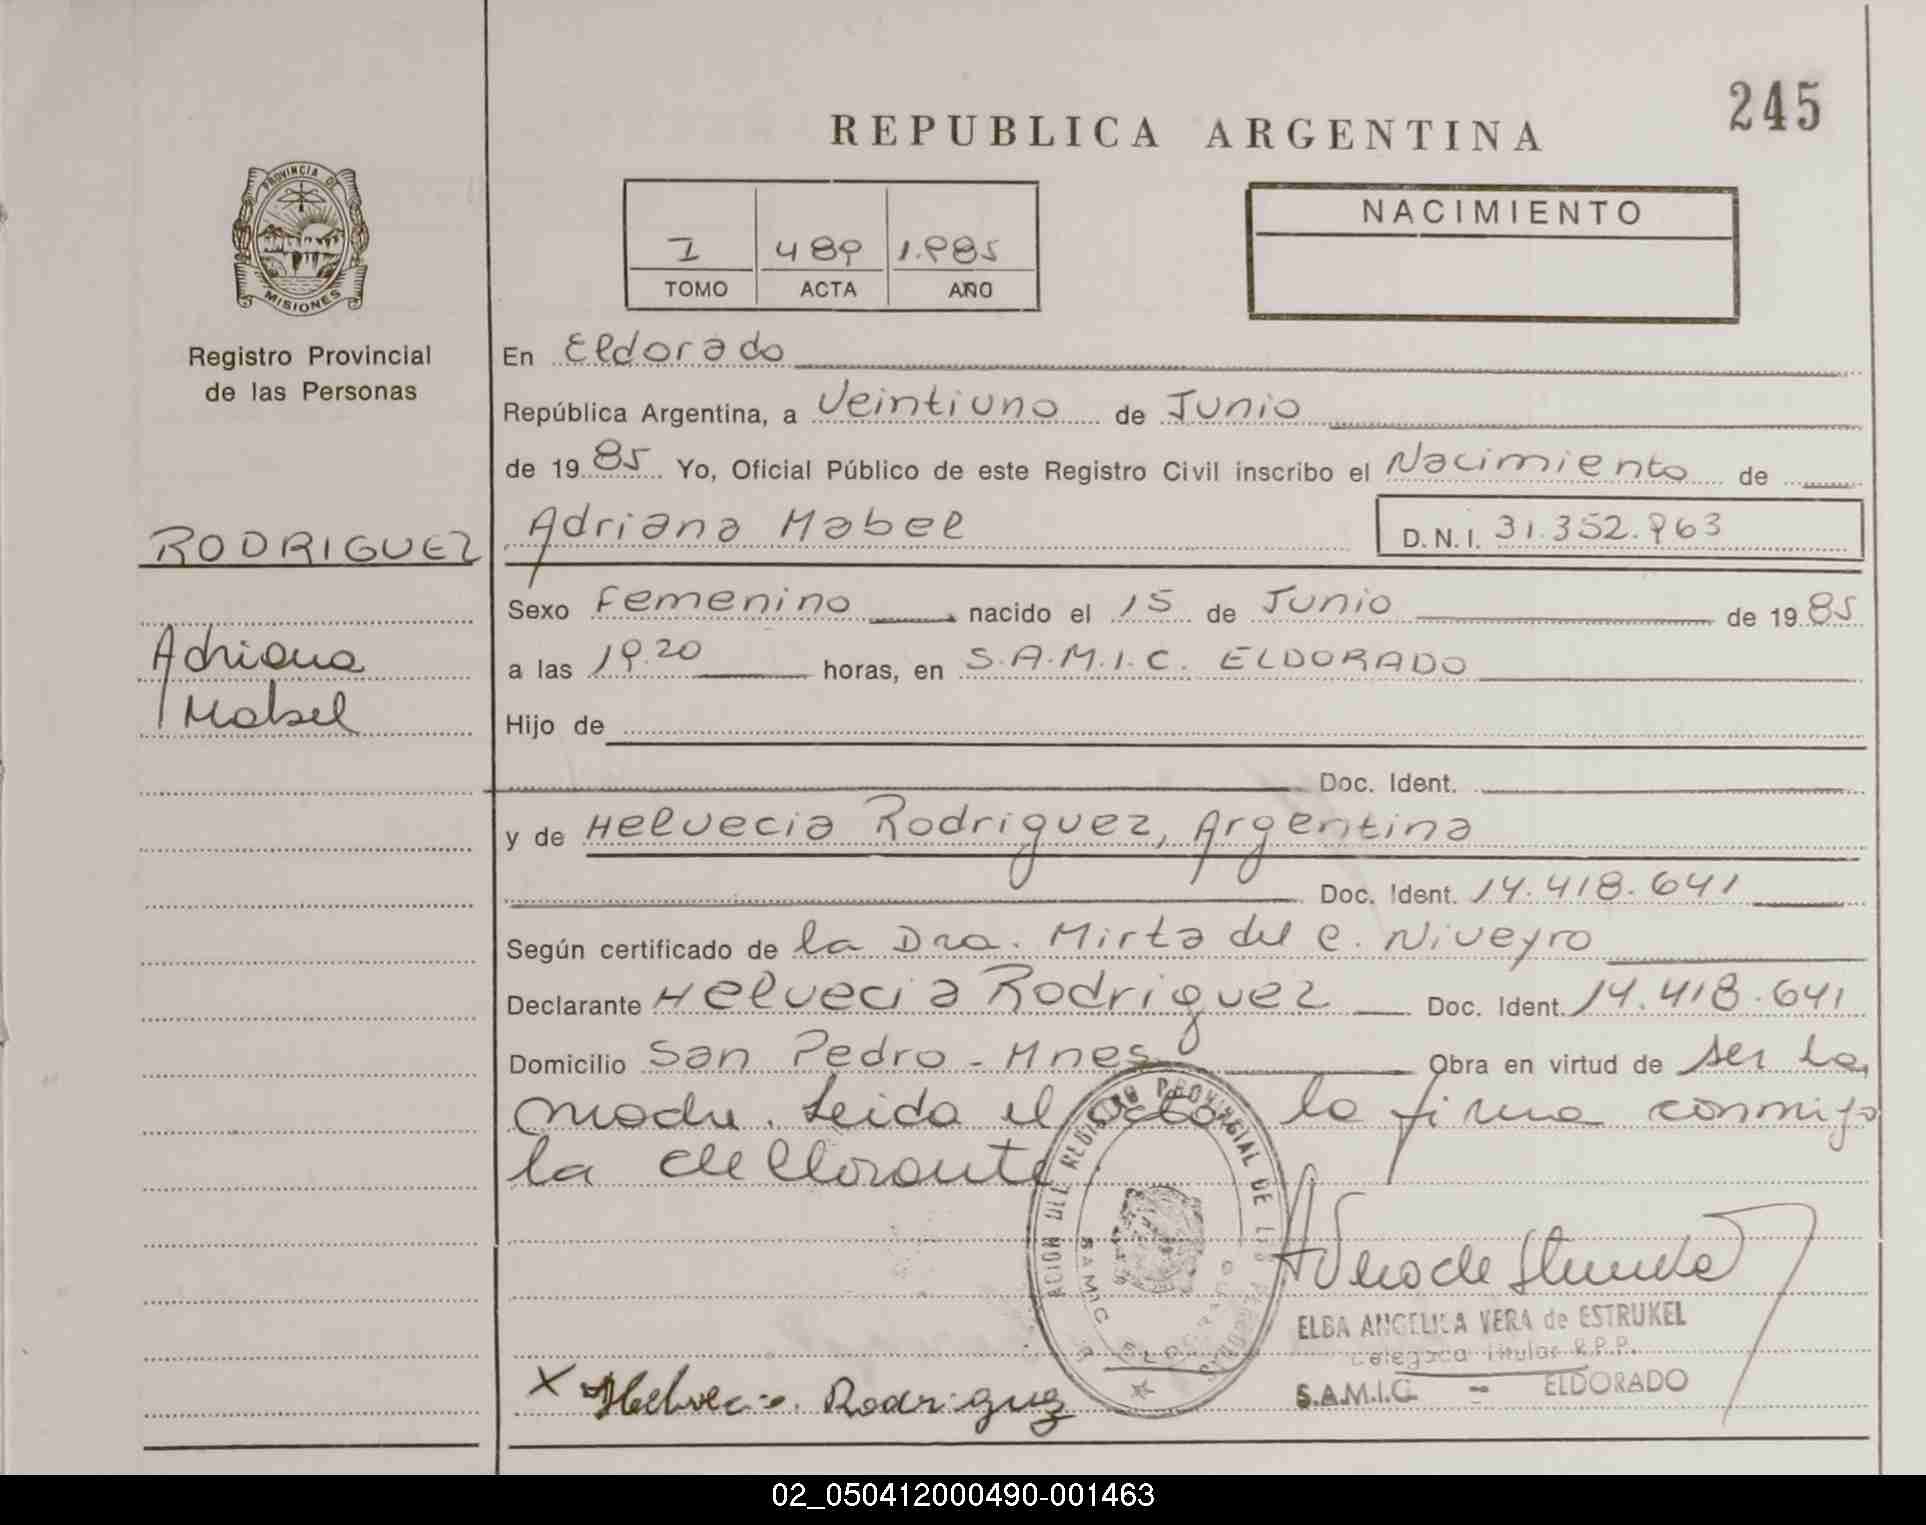 245
REPUBLICA ARGENTINA
PROVINCIA DE
MISIONES
Registro Provincial
de las Personas
I 489 1.985
TOMO ACTA AÑO
NACIMIENTO
En Eldorado
República Argentina, a Veintiuno de Junio
de 1985 Yo, Oficial Público de este Registro Civil inscribo el Nacimiento de
RODRIGUEZ
Adriana Mabel
D.N.I. 31.352.963
Adriana
Mabel
Sexo Femenino nacido el 15 de Junio de 1985
a las 19.20 horas, en S.A.M.I.C. ELDORADO
Hijo de
Doc. Ident.
y de Helvecia Rodriguez, Argentina
Doc. Ident. 14.418.641
Según certificado de la Dra. Mirta del C. Niveyro
Declarante Helvecia Rodriguez Doc. Ident. 14.418.641
Domicilio San Pedro - Mnes Obra en virtud de ser la
madre. Leida el acta la firma conmigo
la declarante.
ELBA ANGELICA VERA de ESTRUKEL
Delegada Titular R.P.P.
S.A.M.I.C. - ELDORADO
X Helvecia Rodriguez
02_050412000490-001463